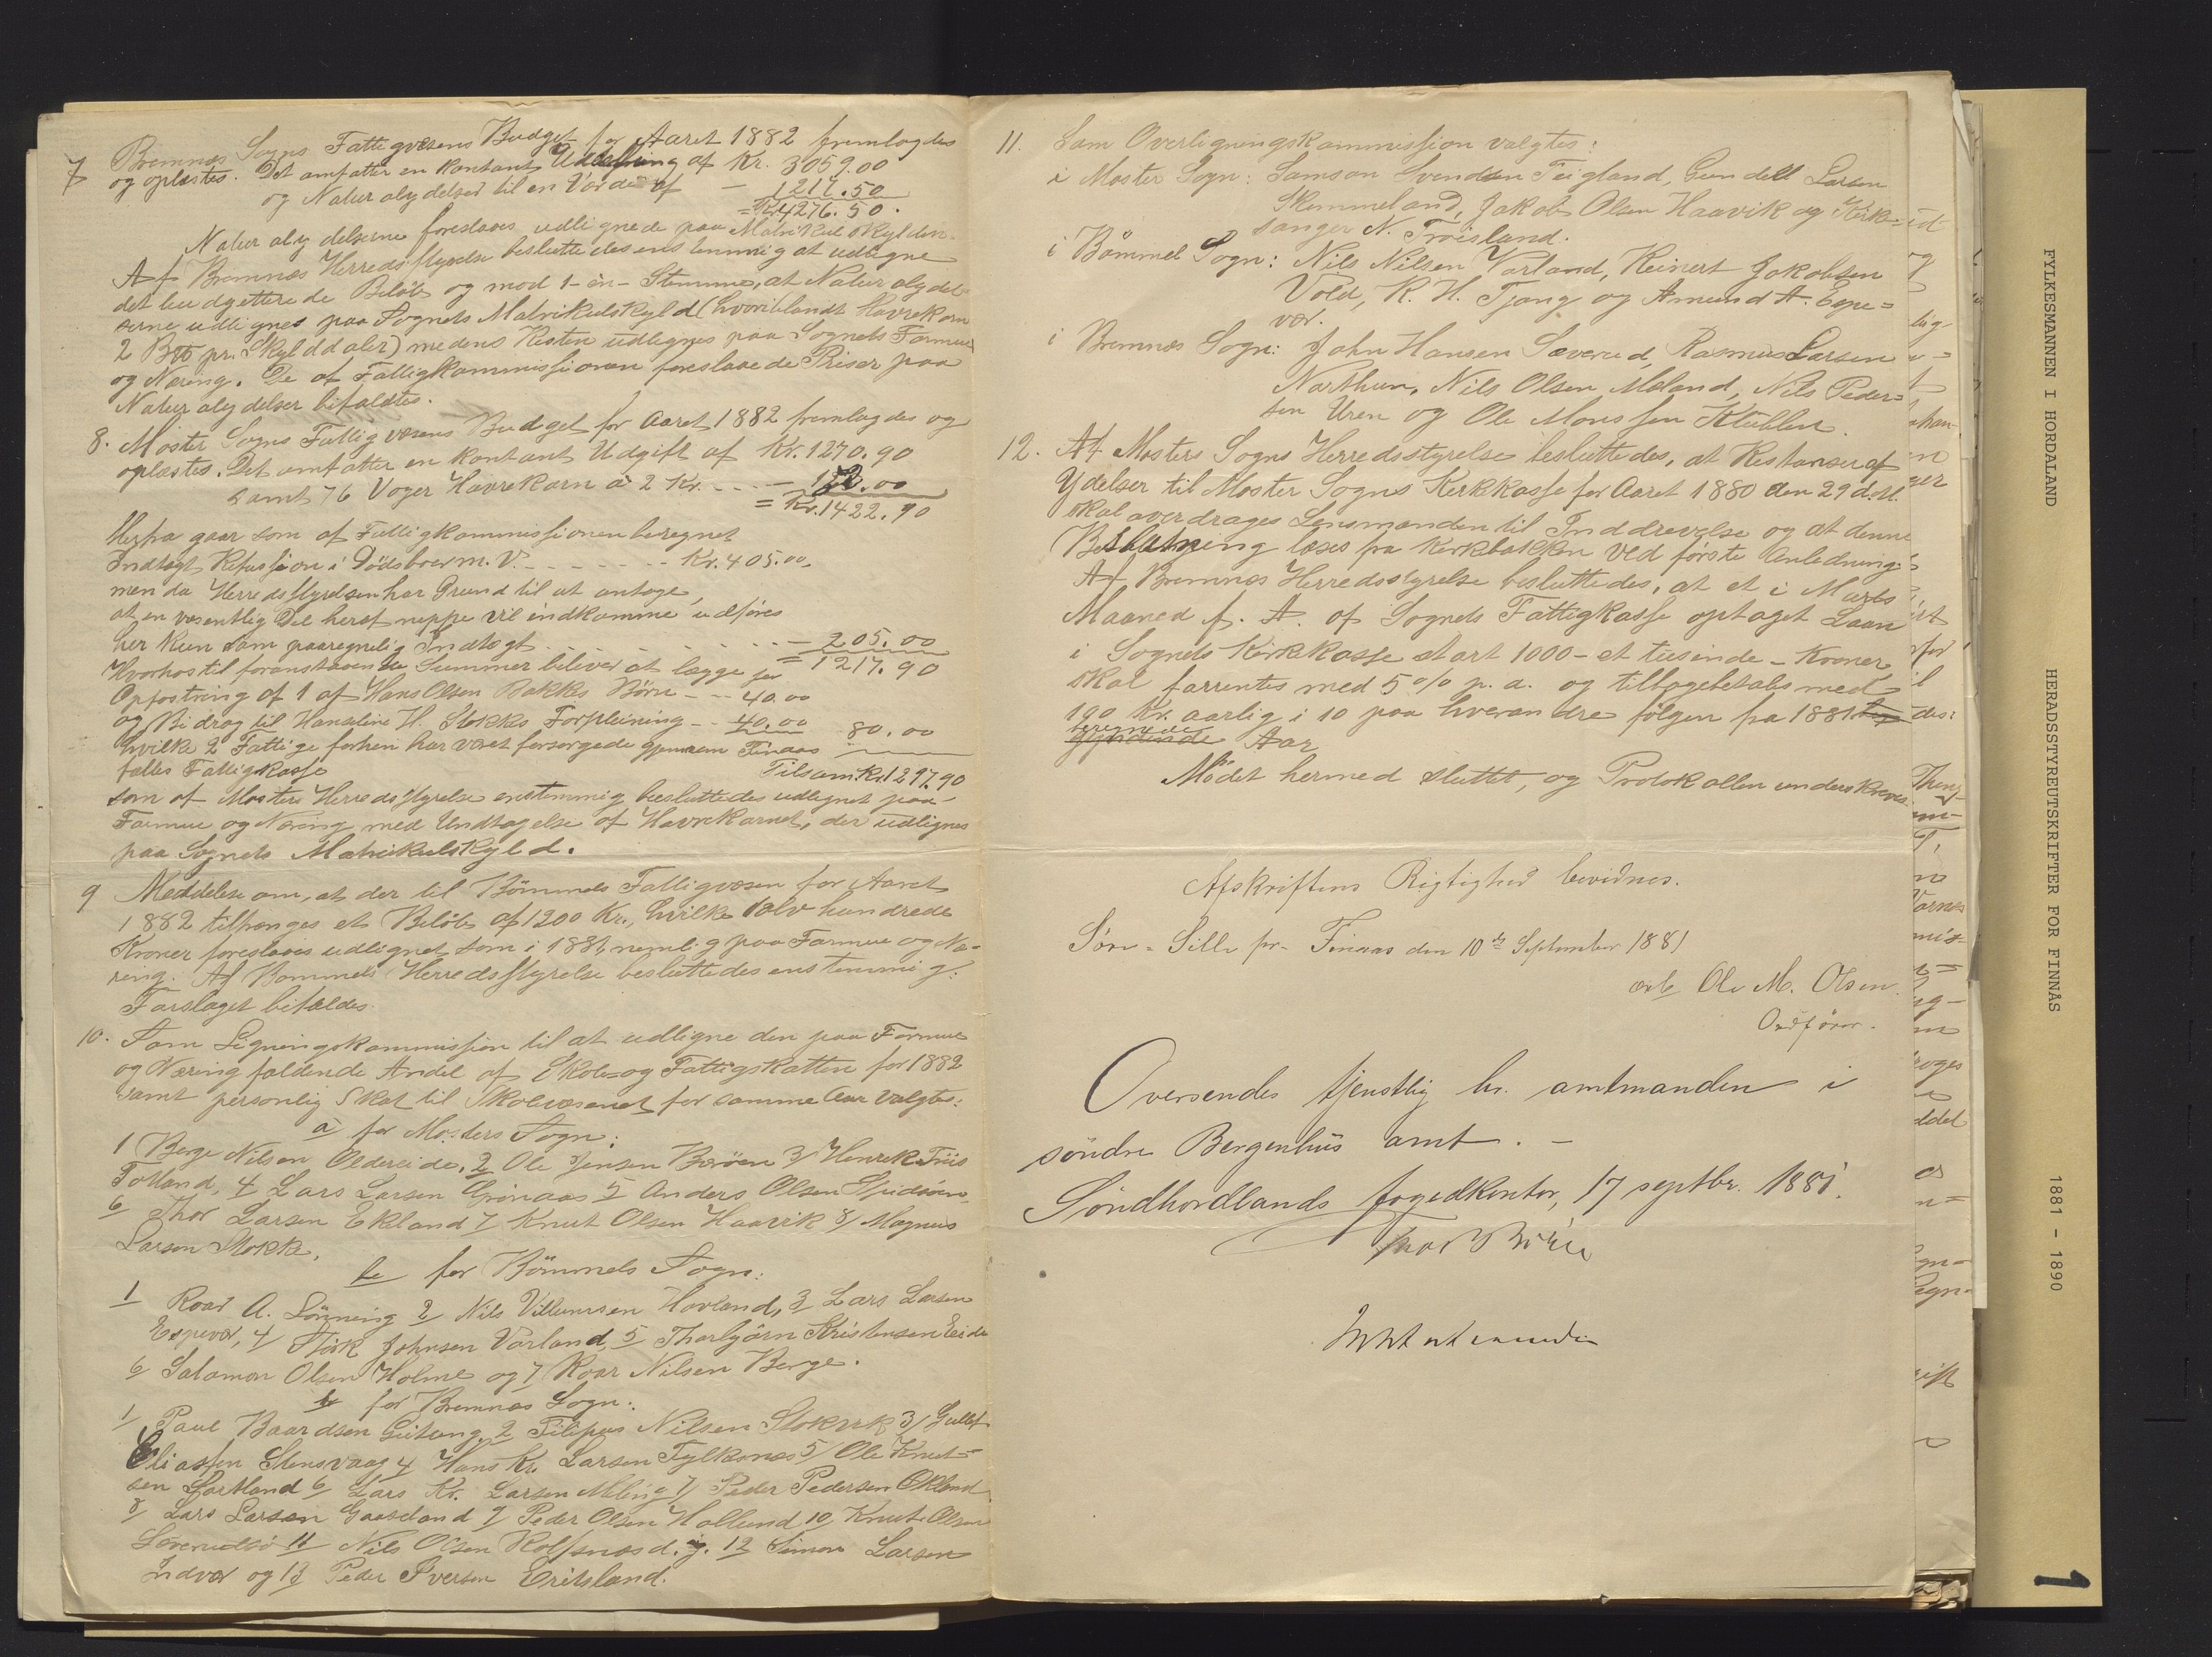 7 Bremnæs Sogns Fattigvæsens Budget for Aaret 1882 fremlagdes
og oplæstes. Det omfatter en kontant Uddeling af Kr. 3059.00
og Naturalydelser til en Værdi af — 1217.50
= Kr. 4276.50.
Naturalydelserne foreslaaes udlignede paa Matrikulskylden.
Af Bremnæs Herredsstyrelse besluttedes enstemmig at udligne
det budgetterede Beløb og mod 1 - èn - Stemme, at Naturalydel-
serne udlignes paa Sognets Matrikulskyld (hvoriblandt Havrekorn
2 B℔ pr. Skylddaler) medens Resten udlignes paa Sognets Formue
og Næring. De af Fattigkommissionen foreslaaede Priser paa
Naturalydelser bifaldtes.
8. Moster Sogns Fattigvæsens Budget for Aaret 1882 fremlagdes og
oplæstes. Det omfatter en kontant Udgift af Kr. 1270.90
samt 76 Voger Havrekorn à 2 Kr. - - - — 152.00
= Kr. 1422.90
Herfra gaar som af Fattigkommissionen beregnet
Indtægt Refusjon i Dödsboer m. V. - - - - - - - Kr. 405.00,
men da Herredsstyrelsen har Grund til at antage,
at en væsentlig Del heraf neppe vil indkomme udføres
her kun som paaregnelig Indtægt - - - - - - — 205.00
= 1217.90
Hvorhos til foranstaaende Summer bliver at lægge for
Opfostring af 1 af Hans Olsen Bakkes Børn - - - 40.00
og Bidrag til Hanseline H. Stokkes Forpleining - - 40.00 80.00
hvilke 2 Fattige forhen har været forsørgede gjennem Finaas
fælles Fattigkasse Tilsam. Kr. 1297.90
som af Mosters Herredsstyrelse enstemmig besluttedes udlignet paa
Formue og Næring med Undtagelse af Havrekornet, der udlignes
paa Sognets Matrikulskyld.
9 Meddelse om, at der til Bömmels Fattigvæsen for Aaret
1882 tiltrænges et Beløb af 1200 Kr., hvilke tolv hundrede
Kroner foreslaaes udlignet som i 1881, nemlig paa Formue og Næ-
ring. Af Bömmels Herredsstyrelse besluttedes enstemmig:
Forslaget bifaldes.
10. Som Ligningskommission til at udligne den paa Formue
og Næring faldende Andel af Skole- og Fattigskatten for 1882
samt personlig Skat til Skolevæsenet for samme Aar valgtes:
a for Mosters Sogn:
1 Berge Nilsen Oldereide, 2 Ole Jensen Barøen 3/ Henrik Friis
Totland, 4 Lars Larsen Grönaas 5 Anders Olsen
6 Thor Larsen Ekland 7 Knut Olsen Haavik 8/ Magnus
Larsen Stokke.
b for Bömmels Sogn:
1 Roar A. Lönning 2 Nils Villumsen Hovland, 3 Lars Larsen
Espevær, 4/ Störk Johnsen Vorland, 5 Thorbjörn Kristensen Eide
6 Salamon Olsen Holme og 7 Roar Nilsen Berge.
for Bremnæs Sogn:
1/ Paul Baardsen Gütung, 2 Filipus Nilsen Stokvik 3/ Gullef
Eliassen Stensvaag 4 Hans Kr. Larsen Fylkesnæs 5/ Ole Knut-
sen Sortland 6 Lars Kr. Larsen Meling 7/ Peder Pedersen Økland
8/ Lars Larsen Gaasland 9 Peder Olsen Hollund 10 Knut Olsen
11 Nils Olsen Rolfsnæs d. y. 12 Simon Larsen
Indvær og 13 Peder Iversen Eritsland.
11. Som Overligningskommission valgtes:
i Moster Sogn: Samson Svendsen Teigland, Gundell Larsen
Skimmeland, Jakob Olsen Haavik og Kirke-
sanger N. Troisland.
i Bömmel Sogn: Nils Nilsen Vorland, Reinert Jakobsen
Vold, R. H. Tjong og Amund A. Espe=
vær.
i Bremnæs Sogn: John Hansen Sæverud, Rasmus Larsen
Northun, Nils Olsen Meland, Nils Peder=
sen Uren og Ole Monssen Klubben.
12. Af Mosters Sogns Herredsstyrelse besluttedes, at Restanser af
Ydelser til Moster Sogns Kirkkasse for Aaret 1880 den 29 d. M.
skal overdrages Lensmanden til Inddrevelse og at denne
Beslutning læses fra Kirkbakken ved første Anledning.
Af Bremnæs Herredsstyrelse besluttedes, at et i Marts
Maaned f. A. af Sognets Fattigkasse optaget Laan
i Sognets Kirkekasse stort 1000 - et tusinde - Kroner
skal forrentes med 5 % p. a. og tilbagebetales med
190 Kr. aarlig i 10 paa hverandre følgen fra 1881
beregnede
Aar
Mödet hermed sluttet, og Protokollen underskreves.
Afskriftens Rigtighed bevidnes.
Sörn-Sille pr. Finaas den 10de September 1881
Ole M. Olsen
Ordförer.
Oversendes tjenstlig hr. amtmanden i
söndre Bergenhus amt. —
Söndhordlands fogedkontor, 17 septbr. 1881.
FYLKESMANNEN I HORDALAND
HERADSSTYREUTSKRIFTER FOR FINNÅS
1881 - 1890
1